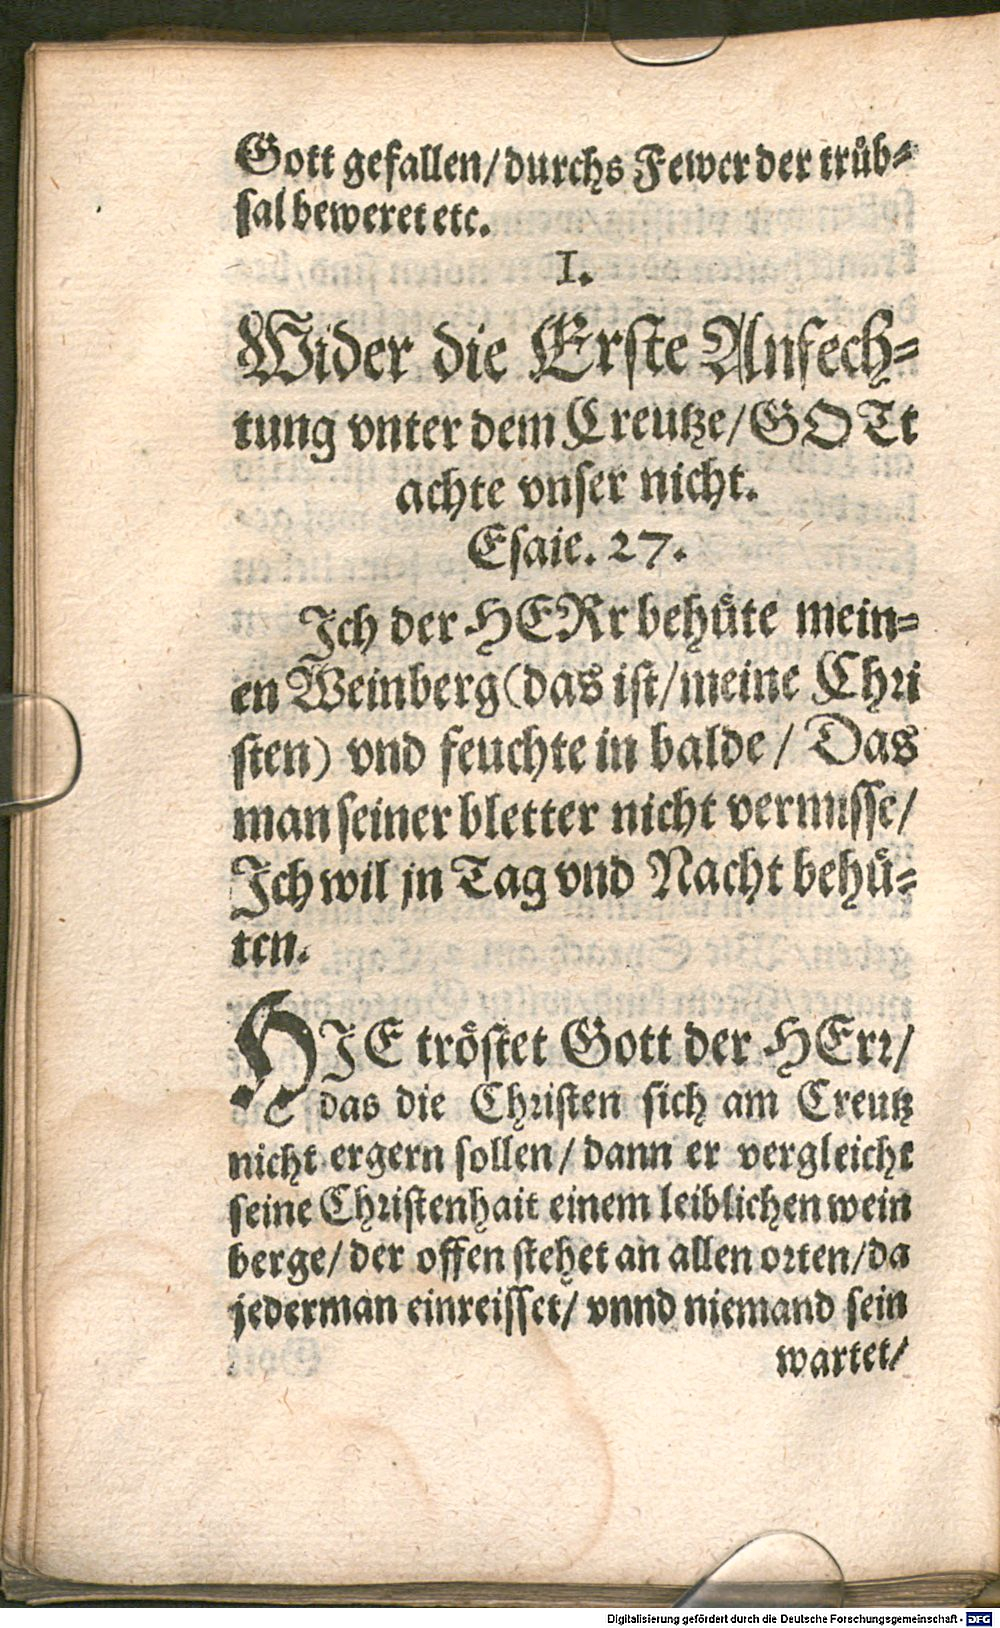 Gott gefallen/durchs Fewer der truͤb⸗
ſal beweret etc.
I.
Wider die Erſte Anfech⸗
tung vnter dem Creutze/GOTt
achte vnſer nicht.
Eſaie. 27.
Ich der HERr behuͤte mein⸗
en Weinberg(das iſt/meine Chri
ſten) vnd feuchte in balde/ Das
man ſeiner bletter nicht vermiſſe/
Ich wil jn Tag vnd Nacht behuͤ⸗
ten.
HIE troͤſtet Gott der HErr/
das die Chriſten ſich am Creutz
nicht ergern ſollen/ dann er vergleicht
ſeine Chriſtenhait einem leiblichen wein
berge/ der offen ſtehet an allen orten/da
jederman einreiſſet/ vnnd niemand ſein
wartet/
Digitalisierung gefördert durch die Deutsche Forschungsgemeinschaft - DFG